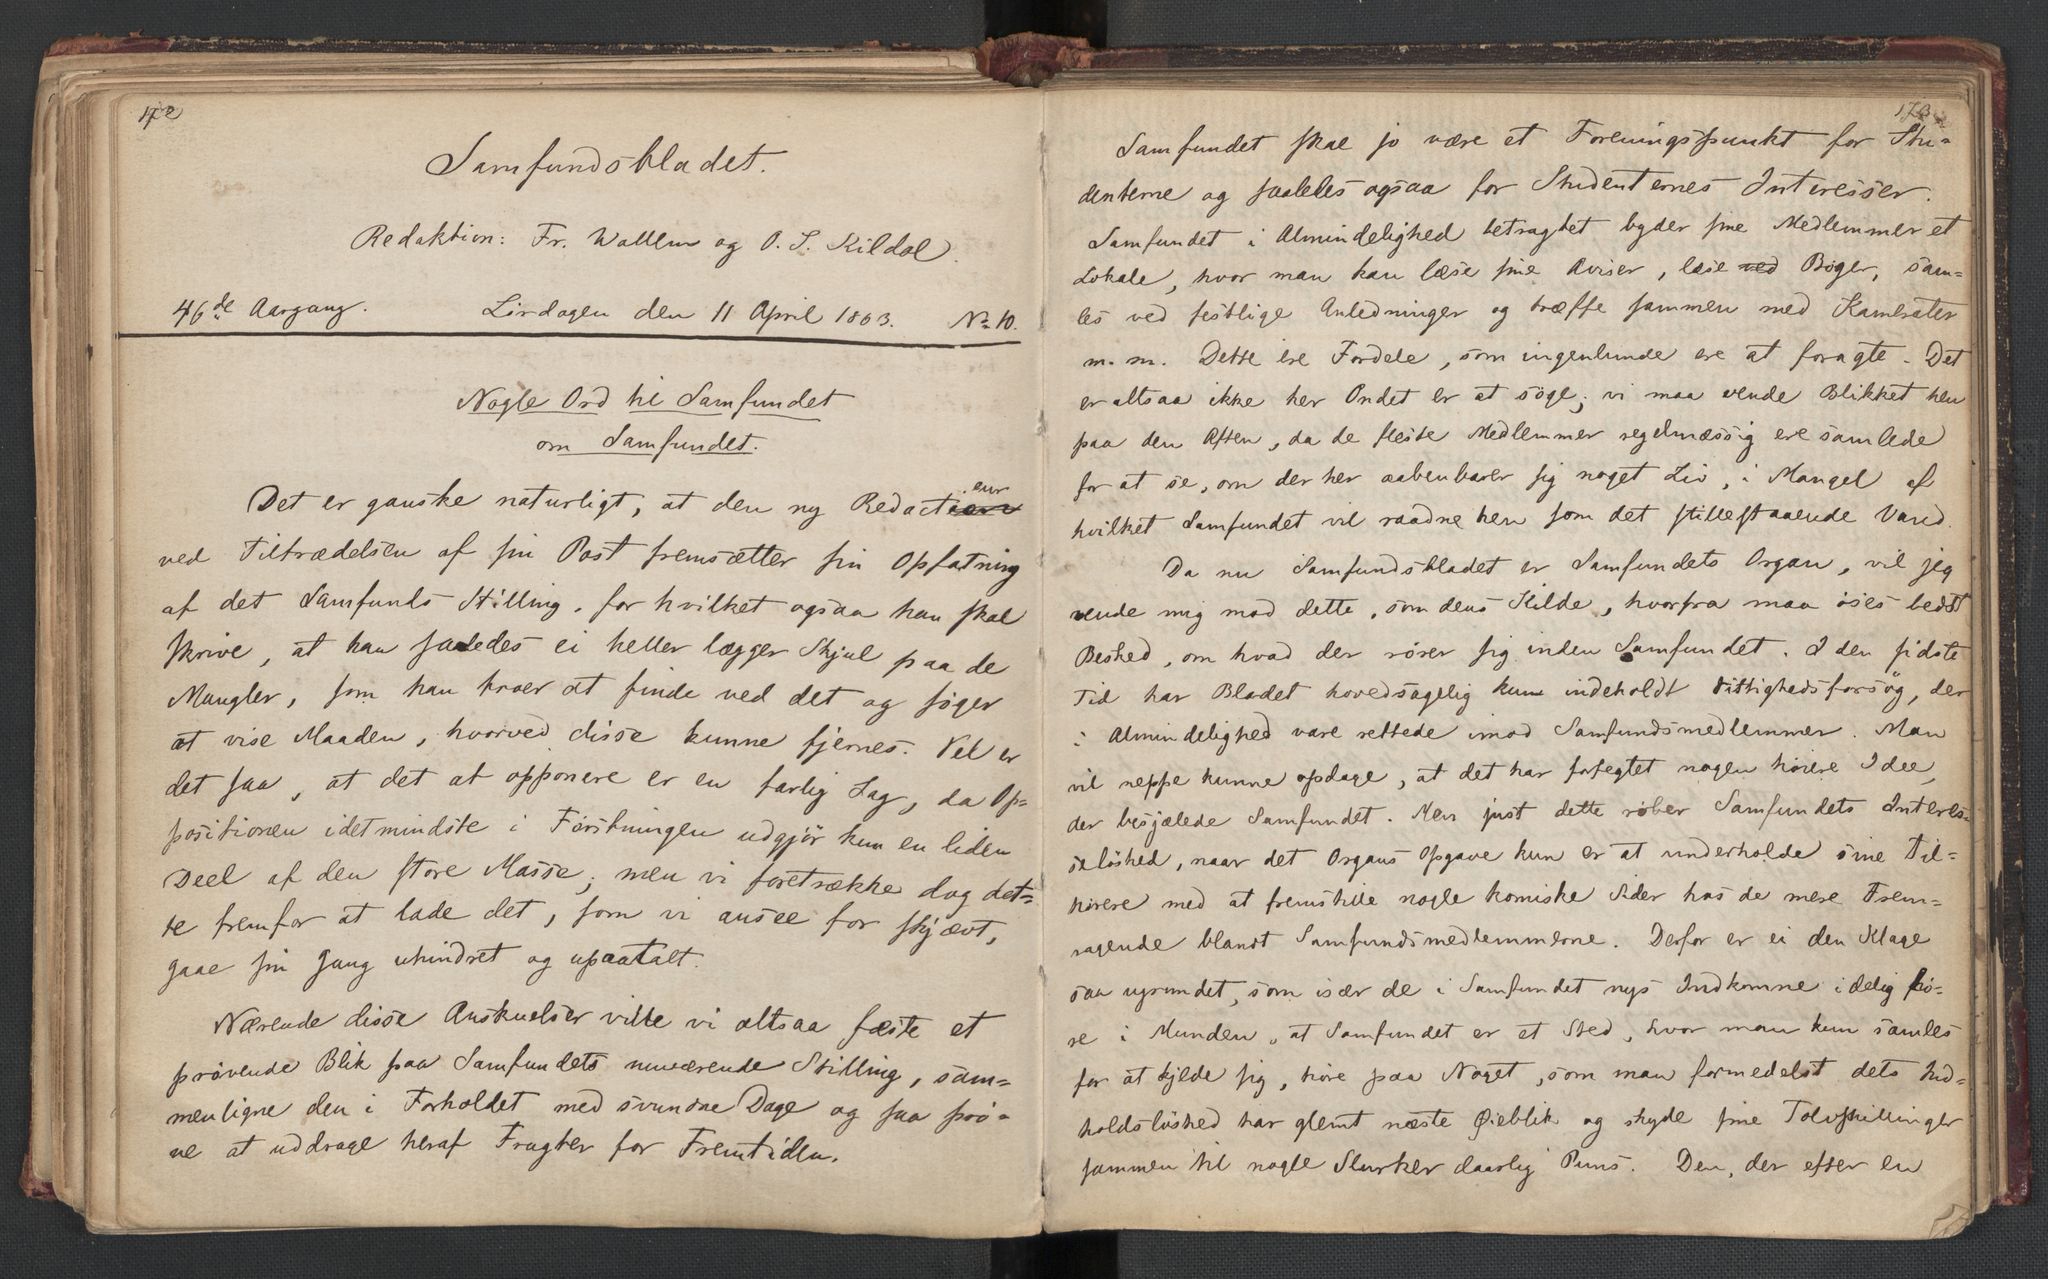 172
Samfundsbladet.
Redaktion: Fr. Wallem og O. S. Kildal.
46de Aargang. Lördagen den 11 April 1863. No 10.
Nogle Ord til Samfundet
om Samfundet.
Det er ganske naturligt, at den ny Redacteur
ved Tiltrædelsen af sin Post fremsætter sin Opfatning
af det Samfunds Stilling, for hvilket ogsaa han skal
skrive, at han saaledes ei heller lægger Skjul paa de
Mangler, som han troer at finde ved det og søger
at vise Maaden, hvorved disse kunne fjernes. Vel er
det saa, at det at opponere er en farlig Sag, da Op=
positionen idetmindste i Førstningen udgjør kun en liden
Deel af den store Masse; men vi foretrække dog det=
te fremfor at lade det, som vi ansee for skjævt,
gaae sin Gang uhindret og upaatalt.
Nærende disse Anskuelser ville vi altsaa fæste et
prøvende Blik paa Samfundets nuværende Stilling, sam=
menligne den i Forholdet med svundne Dage og saa prø=
ve at uddrage heraf Frugter for Fremtiden.
173
Samfundet skal jo være et Foreningspunkt for Stu=
denterne og saaledes ogsaa for Studenternes Interesser.
Samfundet i Almindelighed betragtet byder sine Medlemmer et
Lokale, hvor man kan læse sine Aviser, læse ved Bøger, sam=
les ved festlige Anledninger og træffe sammen med Kamerater
m. m. Dette ere Fordele, som ingenlunde ere at foragte. Det
er altsaa ikke her Ondet er at söge; vi maa vende Blikket hen
paa den Aften, da de fleste Medlemmer regelmæssig ere samlede
for at se, om der her aabenbarer sig noget Liv, i Mangel af
hvilket Samfundet vil raadne hen som det stillestaaende Vand.
Da nu Samfundsbladet er Samfundets Organ, vil jeg
vende mig mod dette, som dens Kilde, hvorfra maa øses bedst
Besked, om hvad der rörer sig inden Samfundet. I den sidste
Tid har Bladet hovedsagelig kun indeholdt Vittighedsforsøg, der
i Almindelighed vare rettede imod Samfundsmedlemmer. Man
vil neppe kunne opdage, at det har forfegtet nogen høiere Idee,
der besjælede Samfundet. Men just dette røber Samfundets Interes=
seløshed, naar det Organs Opgave kun er at underholde sine Til=
hørere med at fremstille nogle komiske Sider hos de mere Frem=
ragende blandt Samfundsmedlemmerne. Derfor er ei den Klage
saa ugrundet, som især de i Samfundet nys Indkomne idelig fø=
re i Munden, at Samfundet er et Sted, hvor man kun samles
for at kjede sig, høre paa Noget, som man formedelst dets Ind=
holdsløshed har glemt næste Øieblik og skyde sine Tolvskillinger
sammen til nogle Slurker daarlig Puns. Den, der efter en